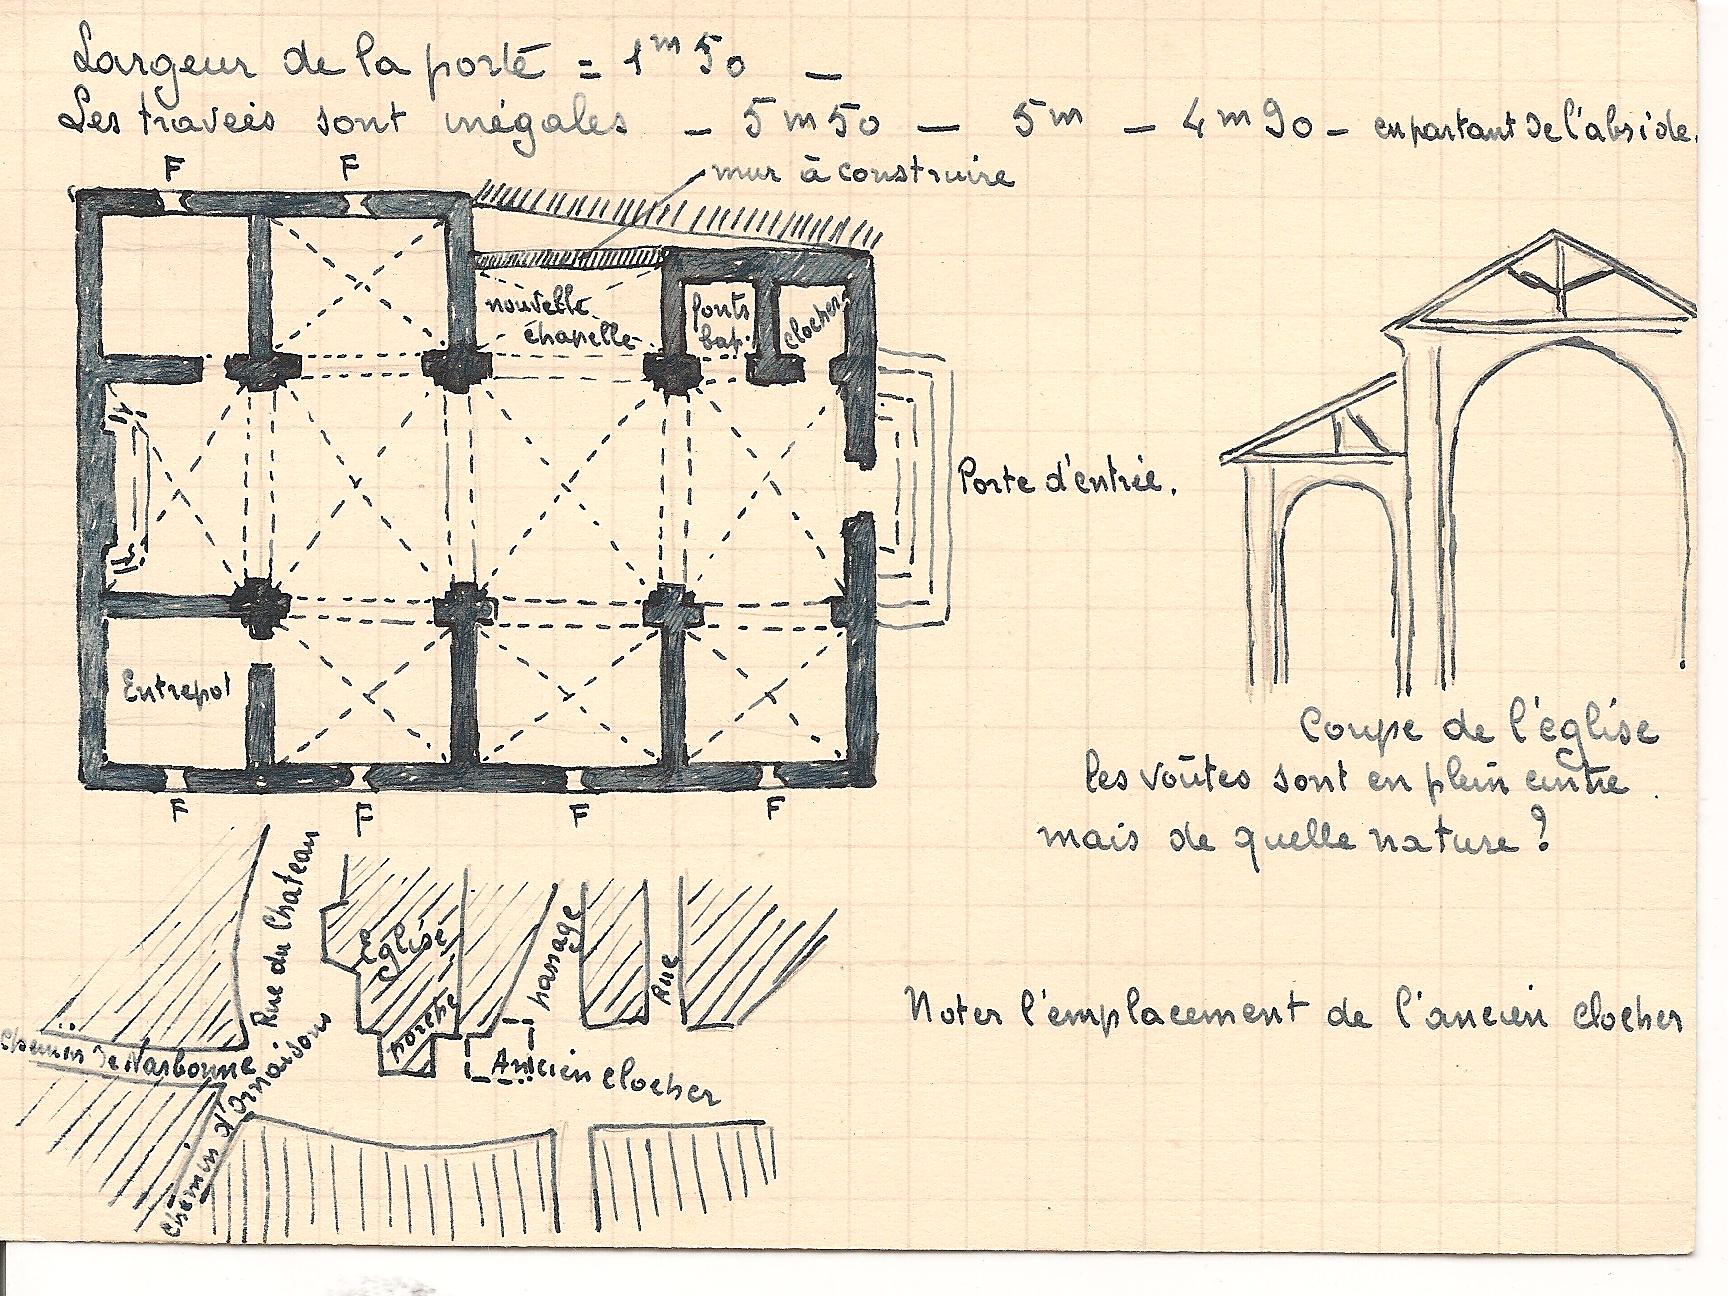 Largeur de la porte = 1m50 –
Les travées sont inégales – 5m50 – 5m – 4m90 – en partant de l'abside.
mur à construire
F
F
nouvelle
chapelle
fonts
bap.
clocher
Porte d'entrée.
Entrepot
F
F
F
F
Coupe de l'église
les voûtes sont en plein cintre.
mais de quelle nature ?
Rue du Chateau
Eglise
porche
passage
Rue
Ancien clocher
Chemin de Narbonne
Chemin d'Ornaisons
Noter l'emplacement de l'ancien clocher